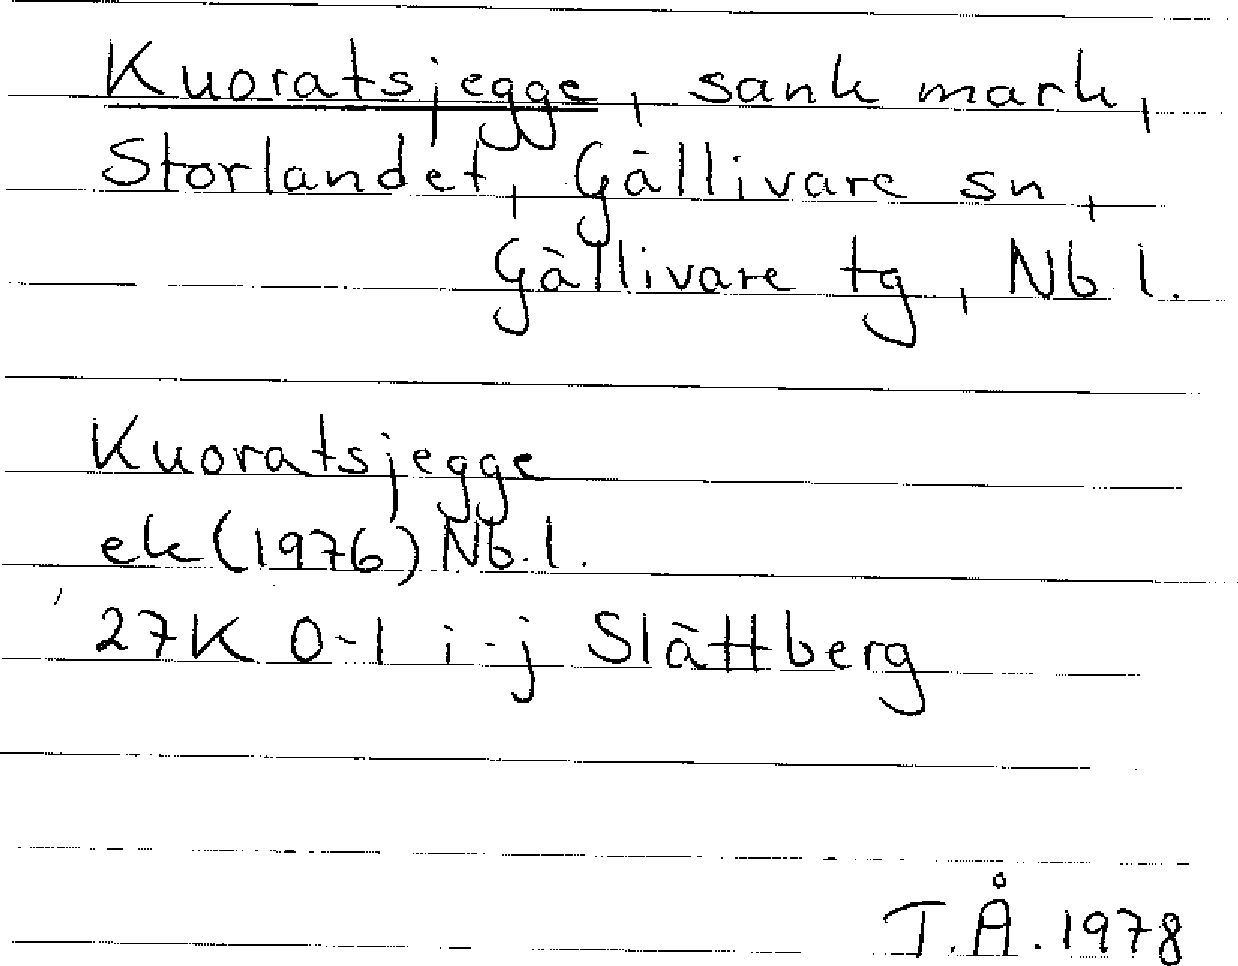 Kuoratsjegge, sank mark,
Storlandet, Gällivare sn,
Gällivare tg, Nb l.
Kuoratsjegge
ek (1976) Nb. l.
27K 0-1 i-j Slättberg
T.Å. 1978